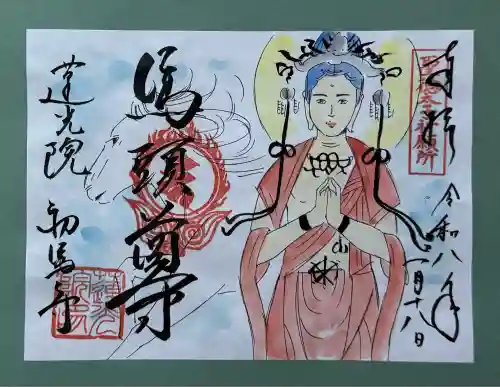 奉拝
令和八年
一月十八日
馬頭尊
蓮光院
初馬寺